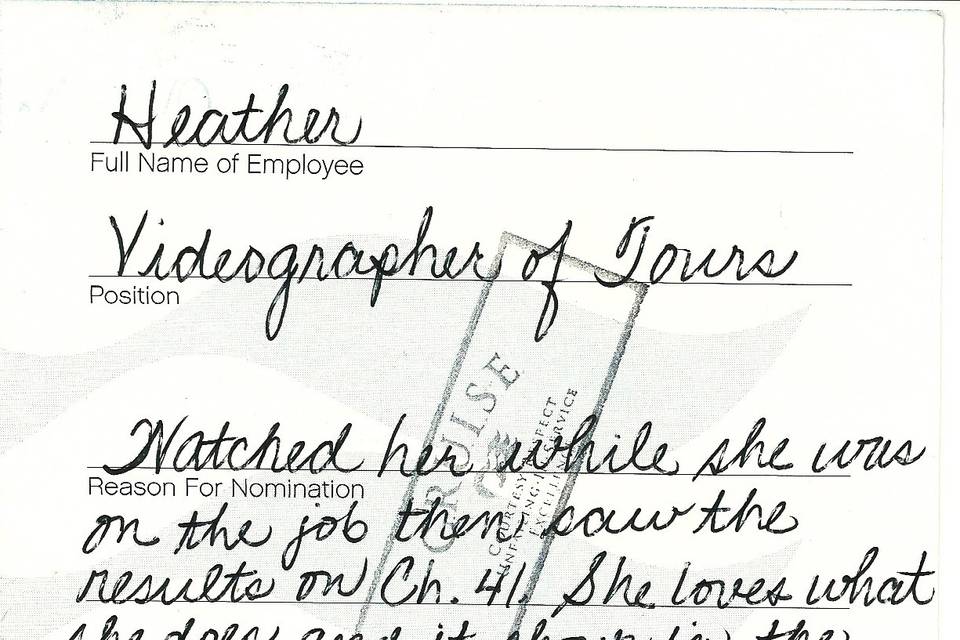 Heather
Full Name of Employee
Videographer of Tours
Position
Watched her while she was
Reason For Nomination
on the job then saw the
results on Ch. 41. She loves what
she does and it shows in the
CRUISE
COURTESY
UNFAILING RESPECT
EXCELLENT SERVICE